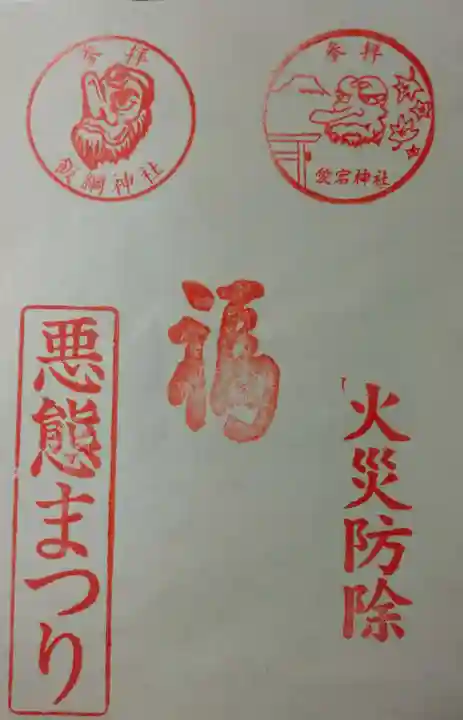 参拝
愛宕神社
火災防除
福
参拝
飯綱神社
悪態まつり